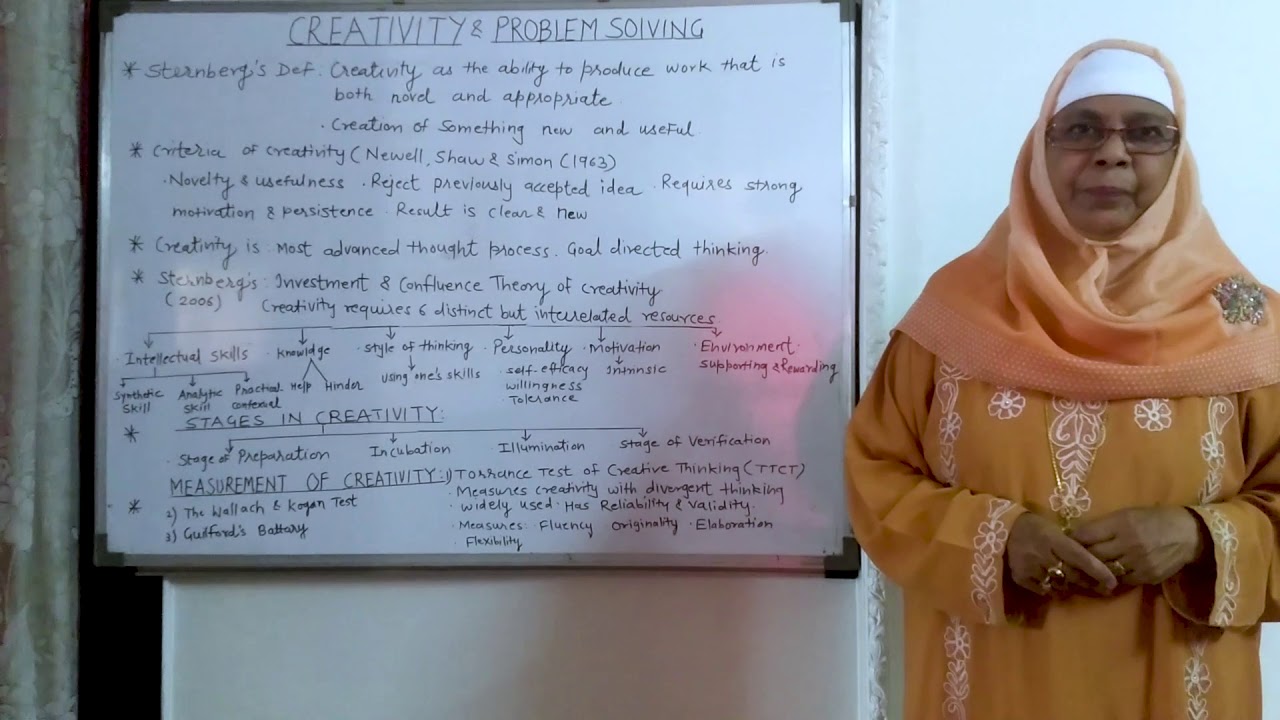 CREATIVITY & PROBLEM SOLVING
* Sternberg's Def. Creativity as the ability to produce work that is
both novel and appropriate.
· Creation of Something new and useful.
* Criteria of creativity (Newell, Shaw & Simon (1963)
· Novelty & usefulness · Reject previously accepted idea · Requires strong
motivation & persistence · Result is clear & new
* Creativity is: Most advanced thought process. Goal directed thinking.
* Sternberg's: Investment & Confluence Theory of creativity
(2006) Creativity requires 6 distinct but interrelated resources.
· Intellectual Skills · Knowledge · Style of thinking · Personality · Motivation · Environment:
Synthetic Skill Analytic Skill Practical contexual Help Hinder using one's skills self-efficacy willingness Tolerance Intrinsic supporting & Rewarding
* STAGES IN CREATIVITY:
· Stage of Preparation Incubation · Illumination Stage of Verification
MEASUREMENT OF CREATIVITY: 1) Torrance Test of Creative Thinking (TTCT)
· Measures creativity with divergent thinking
* 2) The Wallach & Kogan Test · Widely used · Has Reliability & Validity.
3) Guilford's Battary · Measures: Fluency Originality · Elaboration
· Flexibility